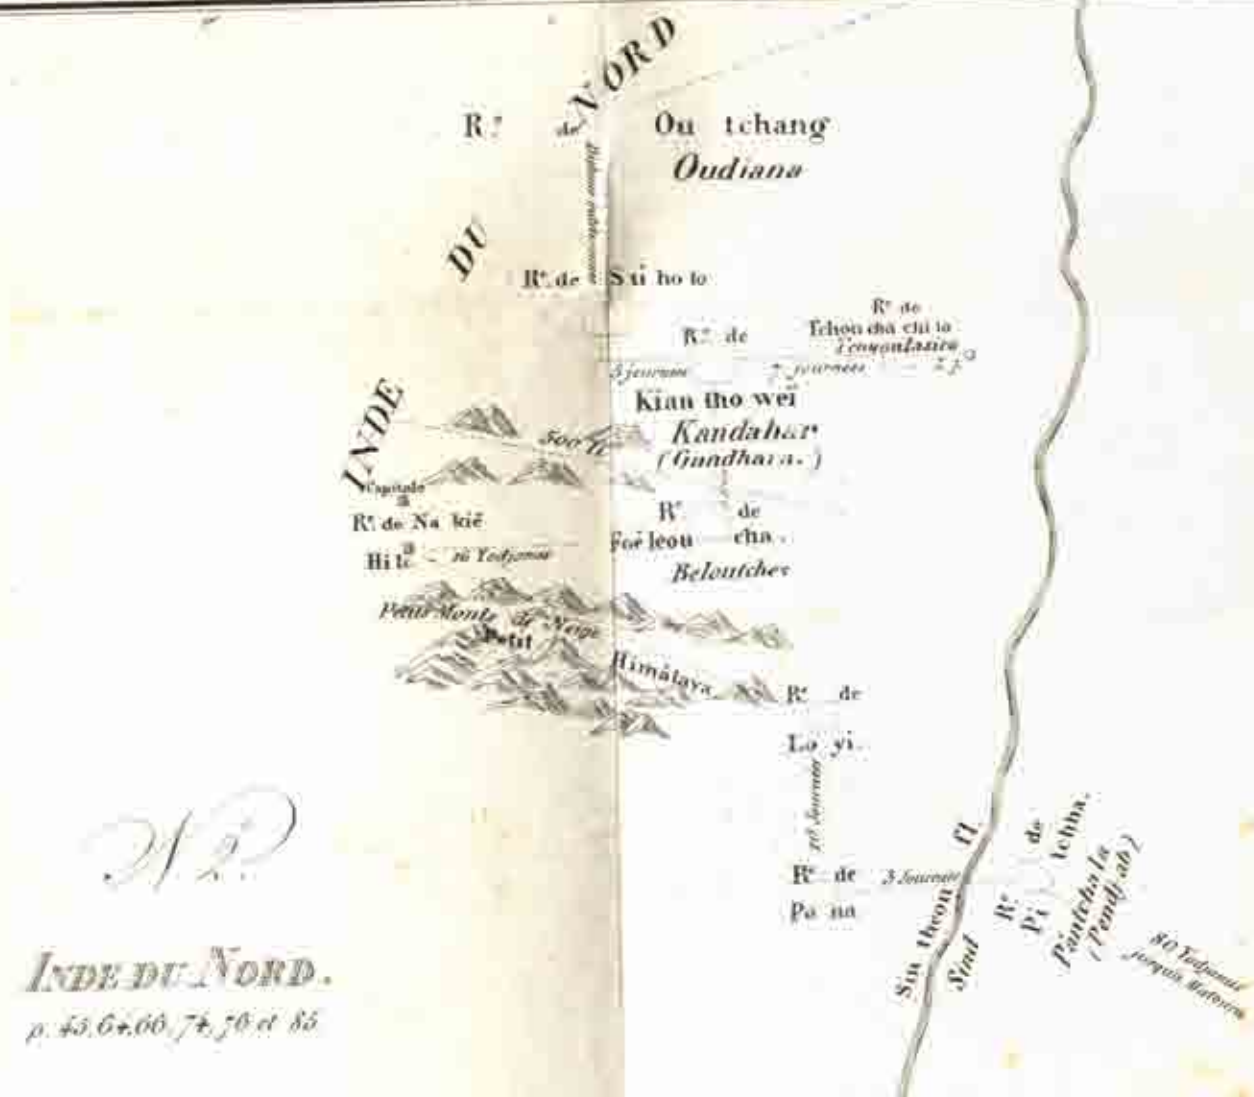 INDE DU NORD
R.e de Ou tchang
Oudiana
R.e de Su ho to
R.e de
Tchou cha chi lo
R.e de
3 journées
7 journées
Kian tho weï
Kandahar
(Gandhara.)
500 li
Capitale
R.e de Na kiĕ
Hi lo
16 Yodjanas
R.e de
Foĕ leou cha.
Beloutches
Petits Monts de Neige
Petit Himâlaya
R.e de
Lo yi.
10 Journées
R.e de
Po na
3 Journées
Sin theou fl.
Sind
R.e de
Pi tchha.
Pantchala
(Pendjab)
80 Yodjanas
jusqu'à
N.o 2.
INDE DU NORD.
p. 45, 64, 66, 74, 76 et 85